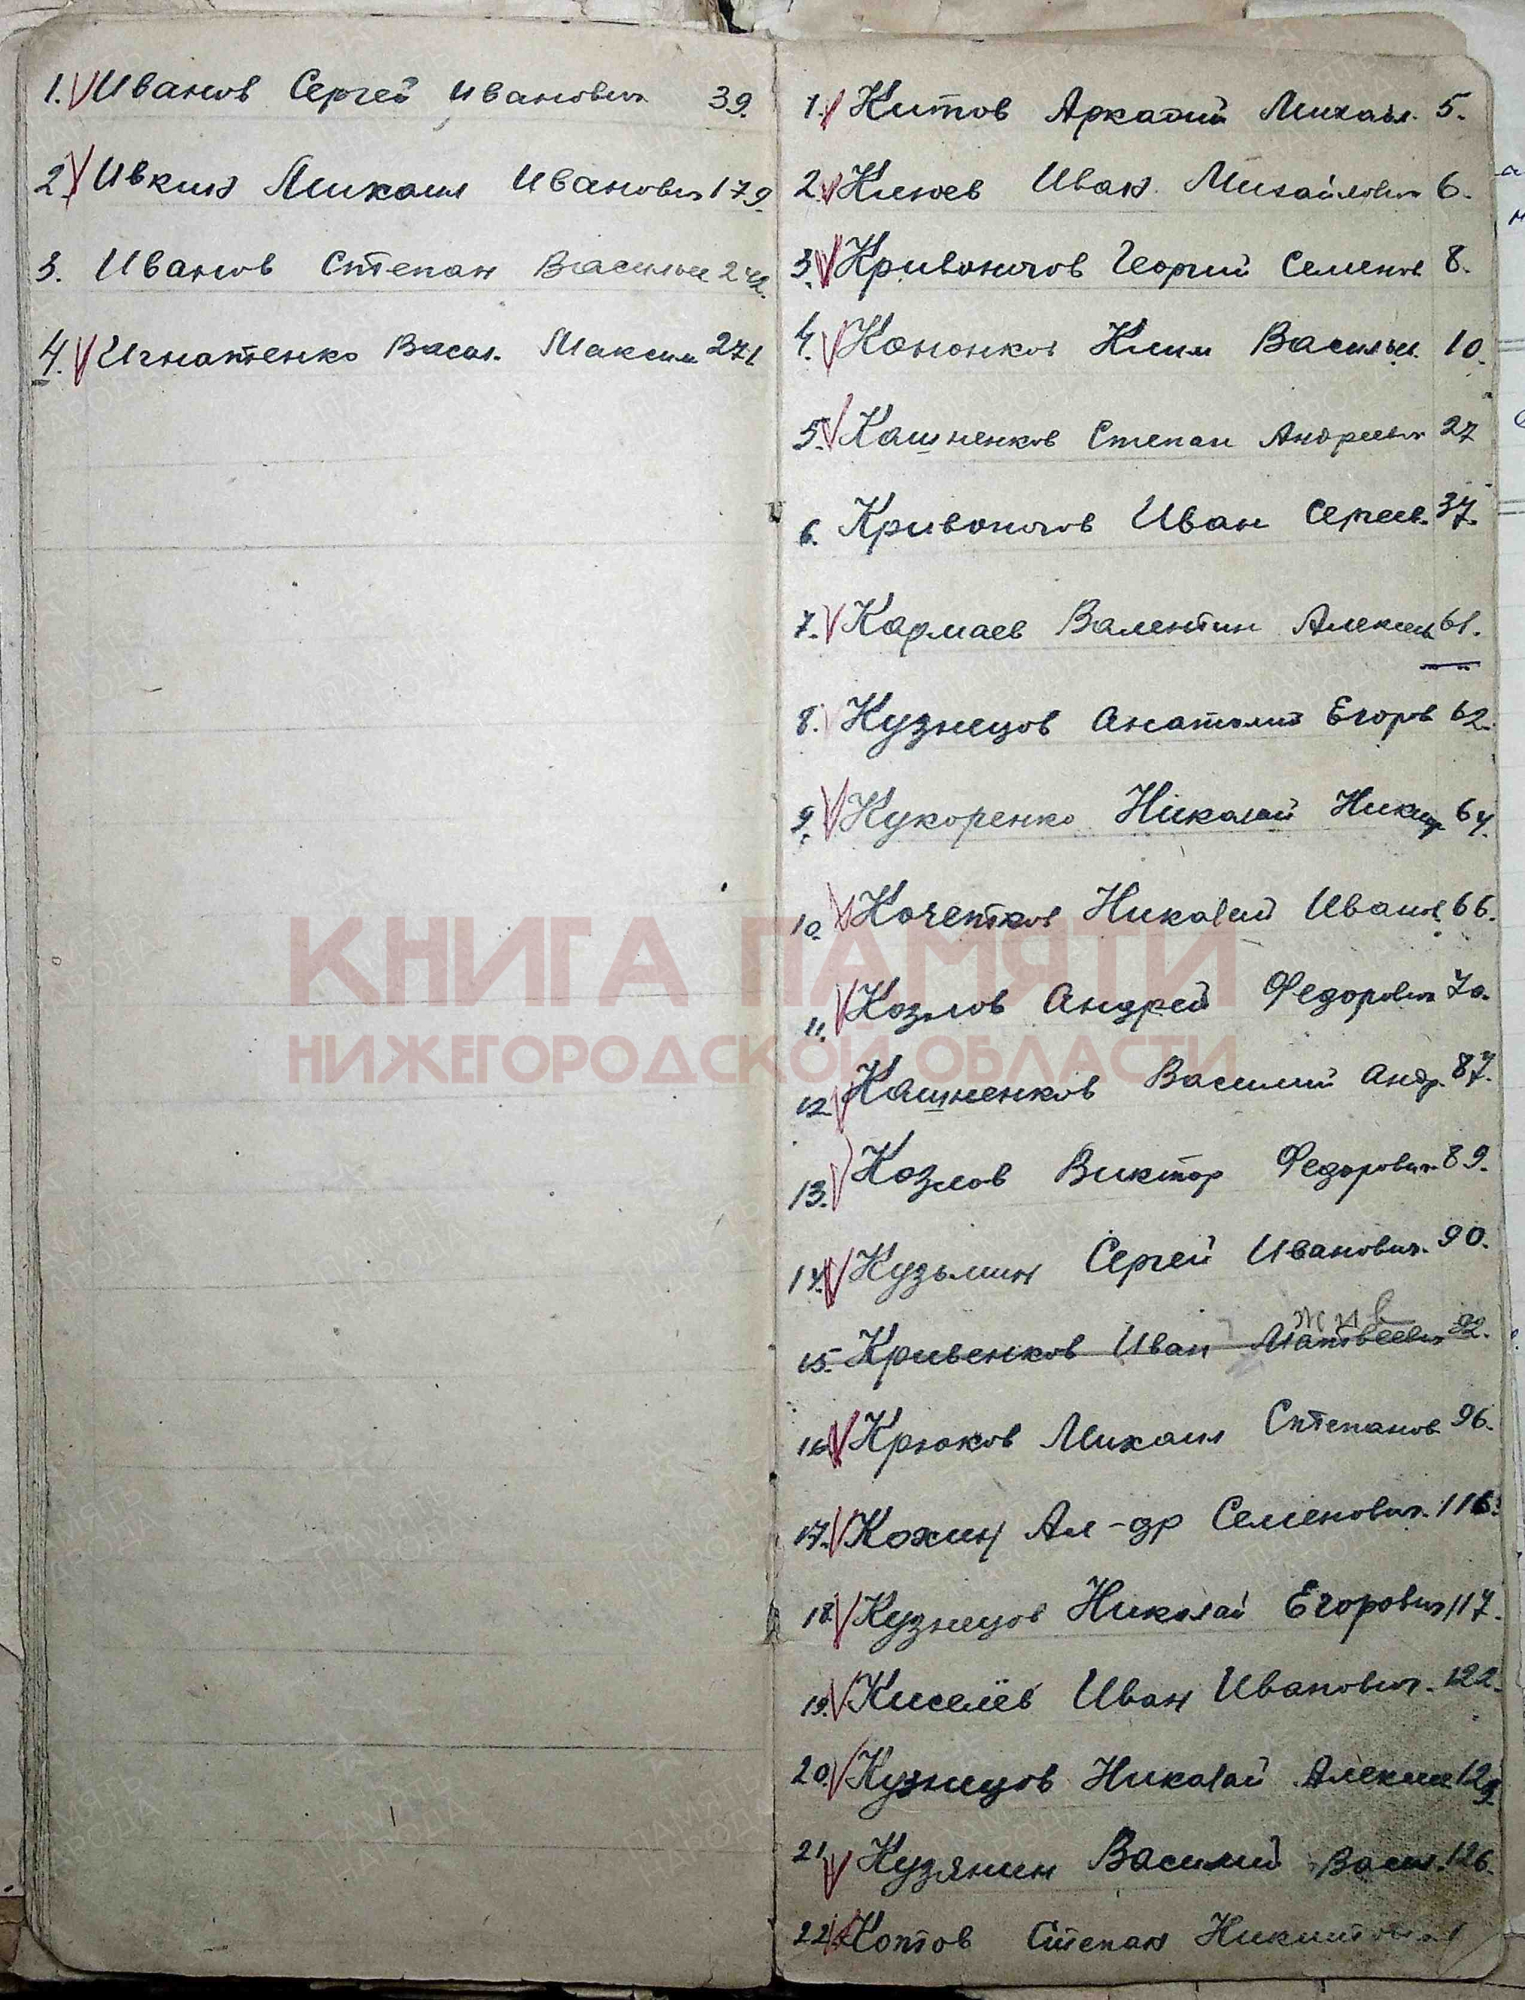 1. Иванов Сергей Иванович 39.
2. Ивкин Михаил Иванович 179.
3. Иванов Степан Василье 242.
4. Игнатенко Васил. Максим 271
1. Китов Аркадий Михайл. 5.
2. Клюев Иван Михайлович 6.
3. Кривоногов Георгий Семенов 8.
4. Кононков Клим Василье. 10.
5. Кашненков Степан Андреевич 27
6. Кривоногов Иван Сергеев. 37.
7. Кармаев Валентин Алексеев 61.
8. Кузнецов Анатолий Егоров 62.
9. Кукоренко Николай 64.
10. Кочетков Николай Иванов. 66.
11. Козлов Андрей Федорович 70.
12. Кашненков Василий Андр. 87.
13. Козлов Виктор Федорович. 89.
14. Кузьмин Сергей Иванович. 90.
жив
15. Кривенков Иван Матвеевич 92.
16. Крюков Михаил Степанов 96.
17. Кожин Ал-др Семенович. 116.
18. Кузнецов Николай Егорович 117.
19. Киселёв Иван Иванович. 122.
20. Кузнецов Николай Алексее 123.
21. Кузянин Василий Васил. 126.
22. Котов Степан
КНИГА ПАМЯТИ
НИЖЕГОРОДСКОЙ ОБЛАСТИ